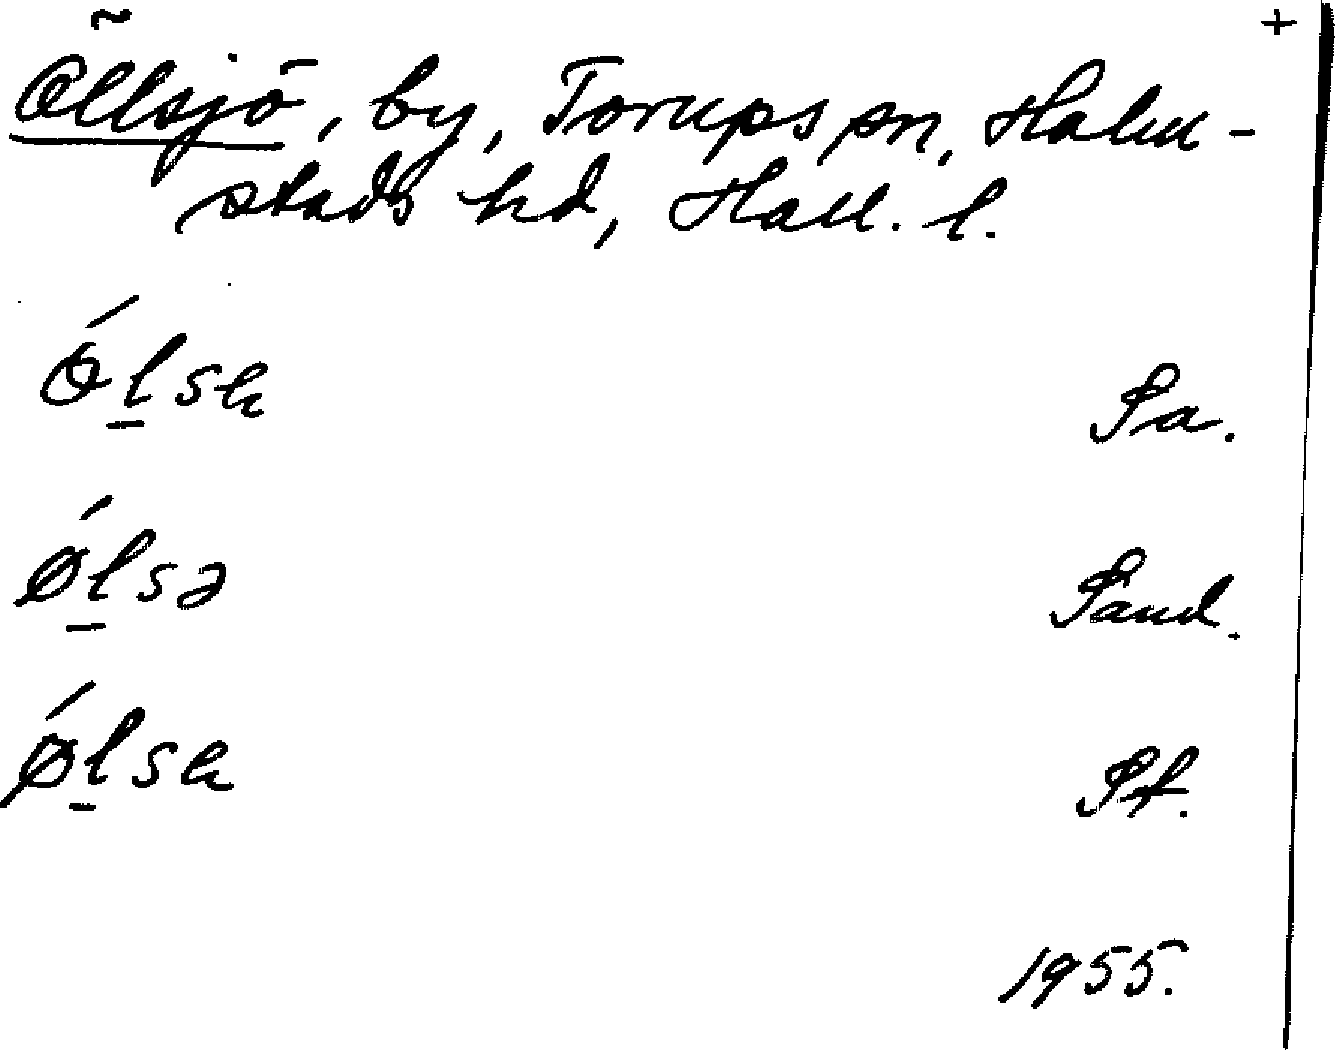 +
Öllsjö, by, Torups sn, Halm-
stads hd, Hall. l.
Ǿl̲sɐ Sa.
ǿl̲sə Sand.
ǿl̲sɐ Sf.
1955.